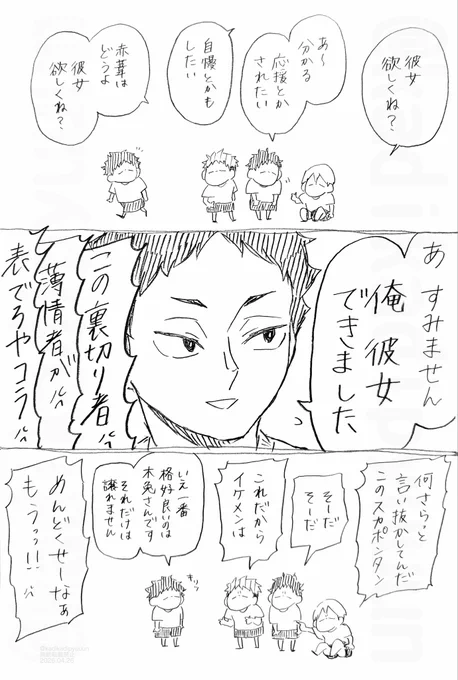 彼女
欲しくね？
あ〜
分かる
応援とか
されたい
自慢とかも
したい
赤葦は
どうよ
彼女
欲しくね？
あ すみません
俺 彼女
できました
この裏切り者
薄情者がﾊﾟ
表でろやコラ
何さらっと
言い抜かしてんだ
このスカポンタン
そーだ
そーだ
これだから
イケメンは
いえ一番
格好良いのは
木兎さんです
それだけは
譲れません
キリッ
めんどくせーなぁ
もうっっ!!